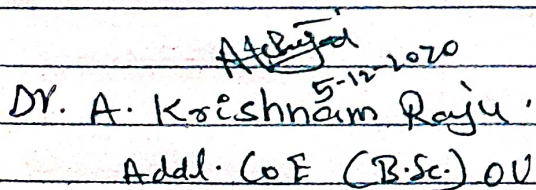 5-12-2020
Dr. A. Krishnam Raju.
Addl. CoE (B.Sc.) OU